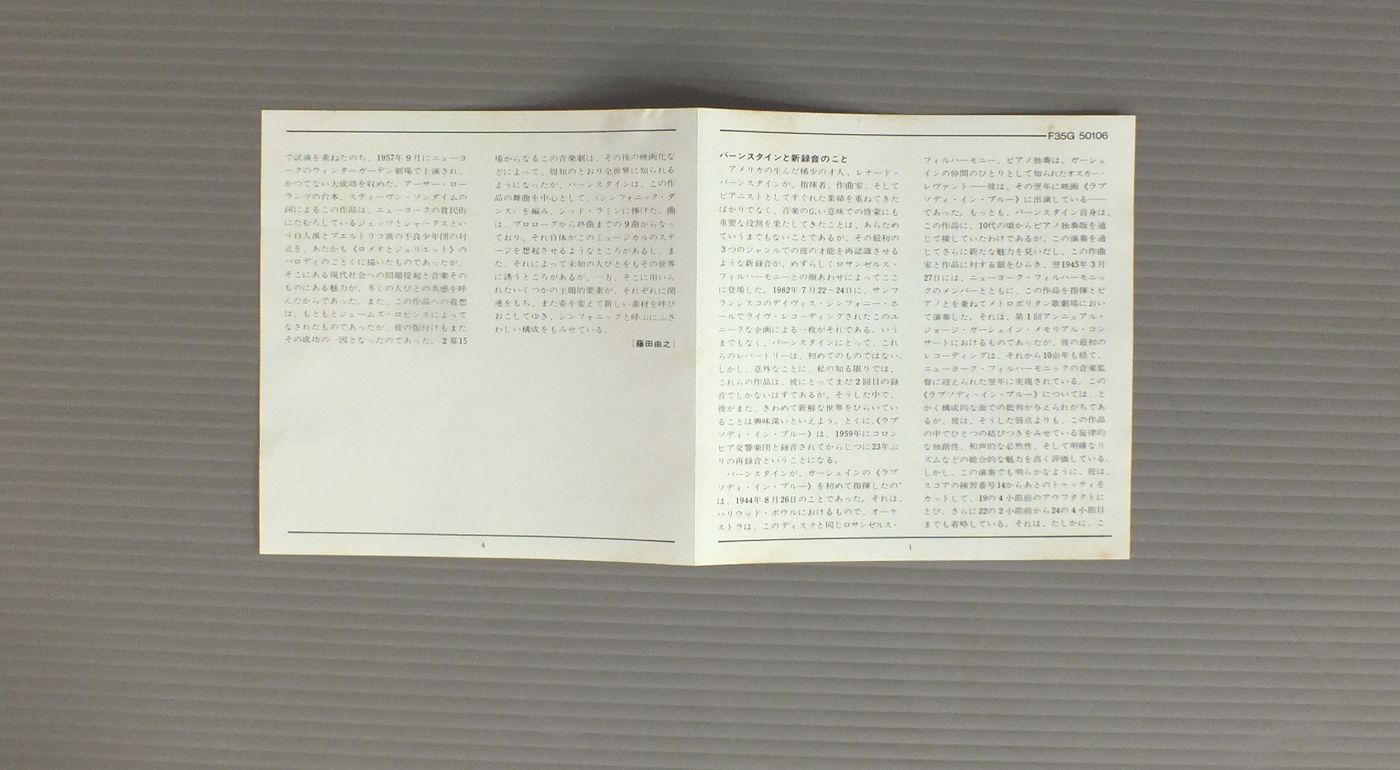 で試演を重ねたのち、1957年9月にニューヨ
ークのウィンターガーデン劇場で上演され、
かつてない大成功を収めた。アーサー・ロー
ランツの台本、スティーヴン・ソンダイムの
詞によるこの作品は、ニューヨークの貧民街
にたむろしているジェッツとシャークスとい
う白人派とプエルトリコ派の不良少年団の対
立を、あたかも《ロメオとジュリエット》の
パロディのごとくに描いたものであったが、
そこにある現代社会への問題提起と音楽その
ものにある魅力が、多くの人びとの共感を呼
んだからであった。また、この作品への着想
は、もともとジェームズ・ロビンスによって
なされたものであったが、彼の振付けもまた
その成功の一因となったのであった。2幕15
場からなるこの音楽劇は、その後の映画化な
どによって、周知のとおり全世界に知られる
ようになったが、バーンスタインは、この作
品の舞曲を中心として、〈シンフォニック・ダ
ンス〉を編み、シッド・ラミンに捧げた。曲
は、プロローグから終曲までの9曲からなっ
ており、それ自体がこのミュージカルのステ
ージを想起させるようなところがあるし、ま
た、それによって未知の人びとをもその世界
に誘うところがあるが、一方、そこに用いら
れたいくつかの主題的要素が、それぞれに関
連をもち、また姿を変えて新しい素材を呼び
おこしてゆき、シンフォニックと呼ぶにふさ
わしい構成をもみせている。
[藤田由之]
4
F35G 50106
バーンスタインと新録音のこと
アメリカの生んだ稀少の才人、レナード・
バーンスタインが、指揮者、作曲家、そして
ピアニストとしてすぐれた業績を重ねてきた
ばかりでなく、音楽の広い意味での啓蒙にも
重要な役割を果たしてきたことは、あらため
ていうまでもないことであるが、その最初の
3つのジャンルでの彼の才能を再認識させる
ような新録音が、めずらしくロサンゼルス・
フィルハーモニーとの顔あわせによってここ
に登場した。1982年7月22～24日に、サンフ
ランシスコのデイヴィス・シンフォニー・ホ
ールでライヴ・レコーディングされたこのユ
ニークな企画による一枚がそれである。いう
までもなく、バーンスタインにとって、これ
らのレパートリーは、初めてのものではない。
しかし、意外なことに、私の知る限りでは、
これらの作品は、彼にとってまだ2回目の録
音でしかないはずであるが、そうした中で、
彼がまた、きわめて新鮮な世界をひらいてい
ることは興味深いといえよう。とくに、《ラプ
ソディ・イン・ブルー》は、1959年にコロン
ビア交響楽団と録音されてからじつに23年ぶ
りの再録音ということになる。
バーンスタインが、ガーシュインの《ラプ
ソディ・イン・ブルー》を初めて指揮したの
は、1944年8月26日のことであった。それは、
ハリウッド・ボウルにおけるもので、オーケ
ストラは、このディスクと同じロサンゼルス・
フィルハーモニー、ピアノ独奏は、ガーシュ
インの仲間のひとりとして知られたオスカー・
レヴァント——彼は、その翌年に映画《ラプ
ソディ・イン・ブルー》に出演している——
であった。もっとも、バーンスタイン自身は、
この作品に、10代の頃からピアノ独奏版を通
じて接していたわけであるが、この演奏を通
じてさらに新たな魅力を見いだし、この作曲
家と作品に対する眼をひらき、翌1945年3月
27日には、ニューヨーク・フィルハーモニッ
クのメンバーとともに、この作品を指揮とピ
アノとを兼ねてメトロポリタン歌劇場におい
て演奏した。それは、第1回アンニュアル・
ジョージ・ガーシュイン・メモリアル・コン
サートにおけるものであったが、彼の最初の
レコーディングは、それから10余年も経て、
ニューヨーク・フィルハーモニックの音楽監
督に迎えられた翌年に実現されている。この
《ラプソディ・イン・ブルー》については、と
かく構成的な面での批判が与えられがちであ
るが、彼は、そうした弱点よりも、この作品
の中でひとつの結びつきをみせている旋律的
な独創性、和声的な必然性、そして明確なリ
ズムなどの総合的な魅力を高く評価している。
しかし、この演奏でも明らかなように、彼は、
スコアの練習番号14からあとのトゥッティを
カットして、19の4小節前のアウフタクトに
とび、さらに22の2小節前から24の4小節目
までも省略している。それは、たしかに、こ
1